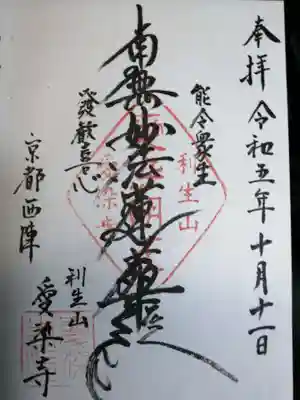 奉拝 令和五年十月十一日
能令衆生
利生山
南無妙法蓮華経
發歓喜心
利生山
愛染寺
京都西陣